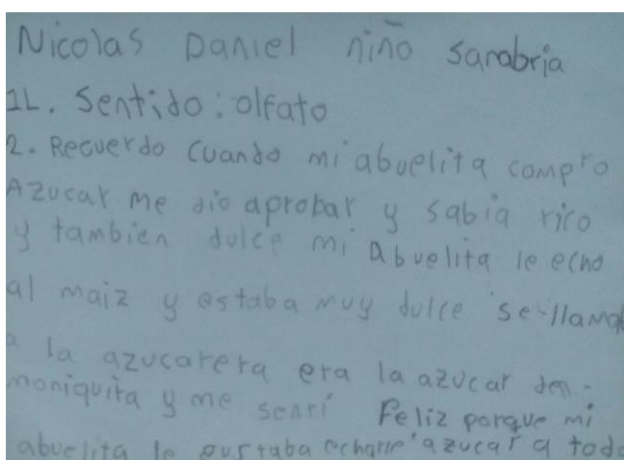 Nicolas Daniel niño sanabria
1L. Sentido: olfato
2. Recuerdo cuando mi abuelita compro
Azucar me dio aprobar y sabia rico
y tambien dulce mi Abuelita le echo
al maiz y estaba muy dulce se llama
a la azucarera era la azucar de
moniquira y me sentí Feliz porque mi
abuelita le gustaba echarle azucar a todo